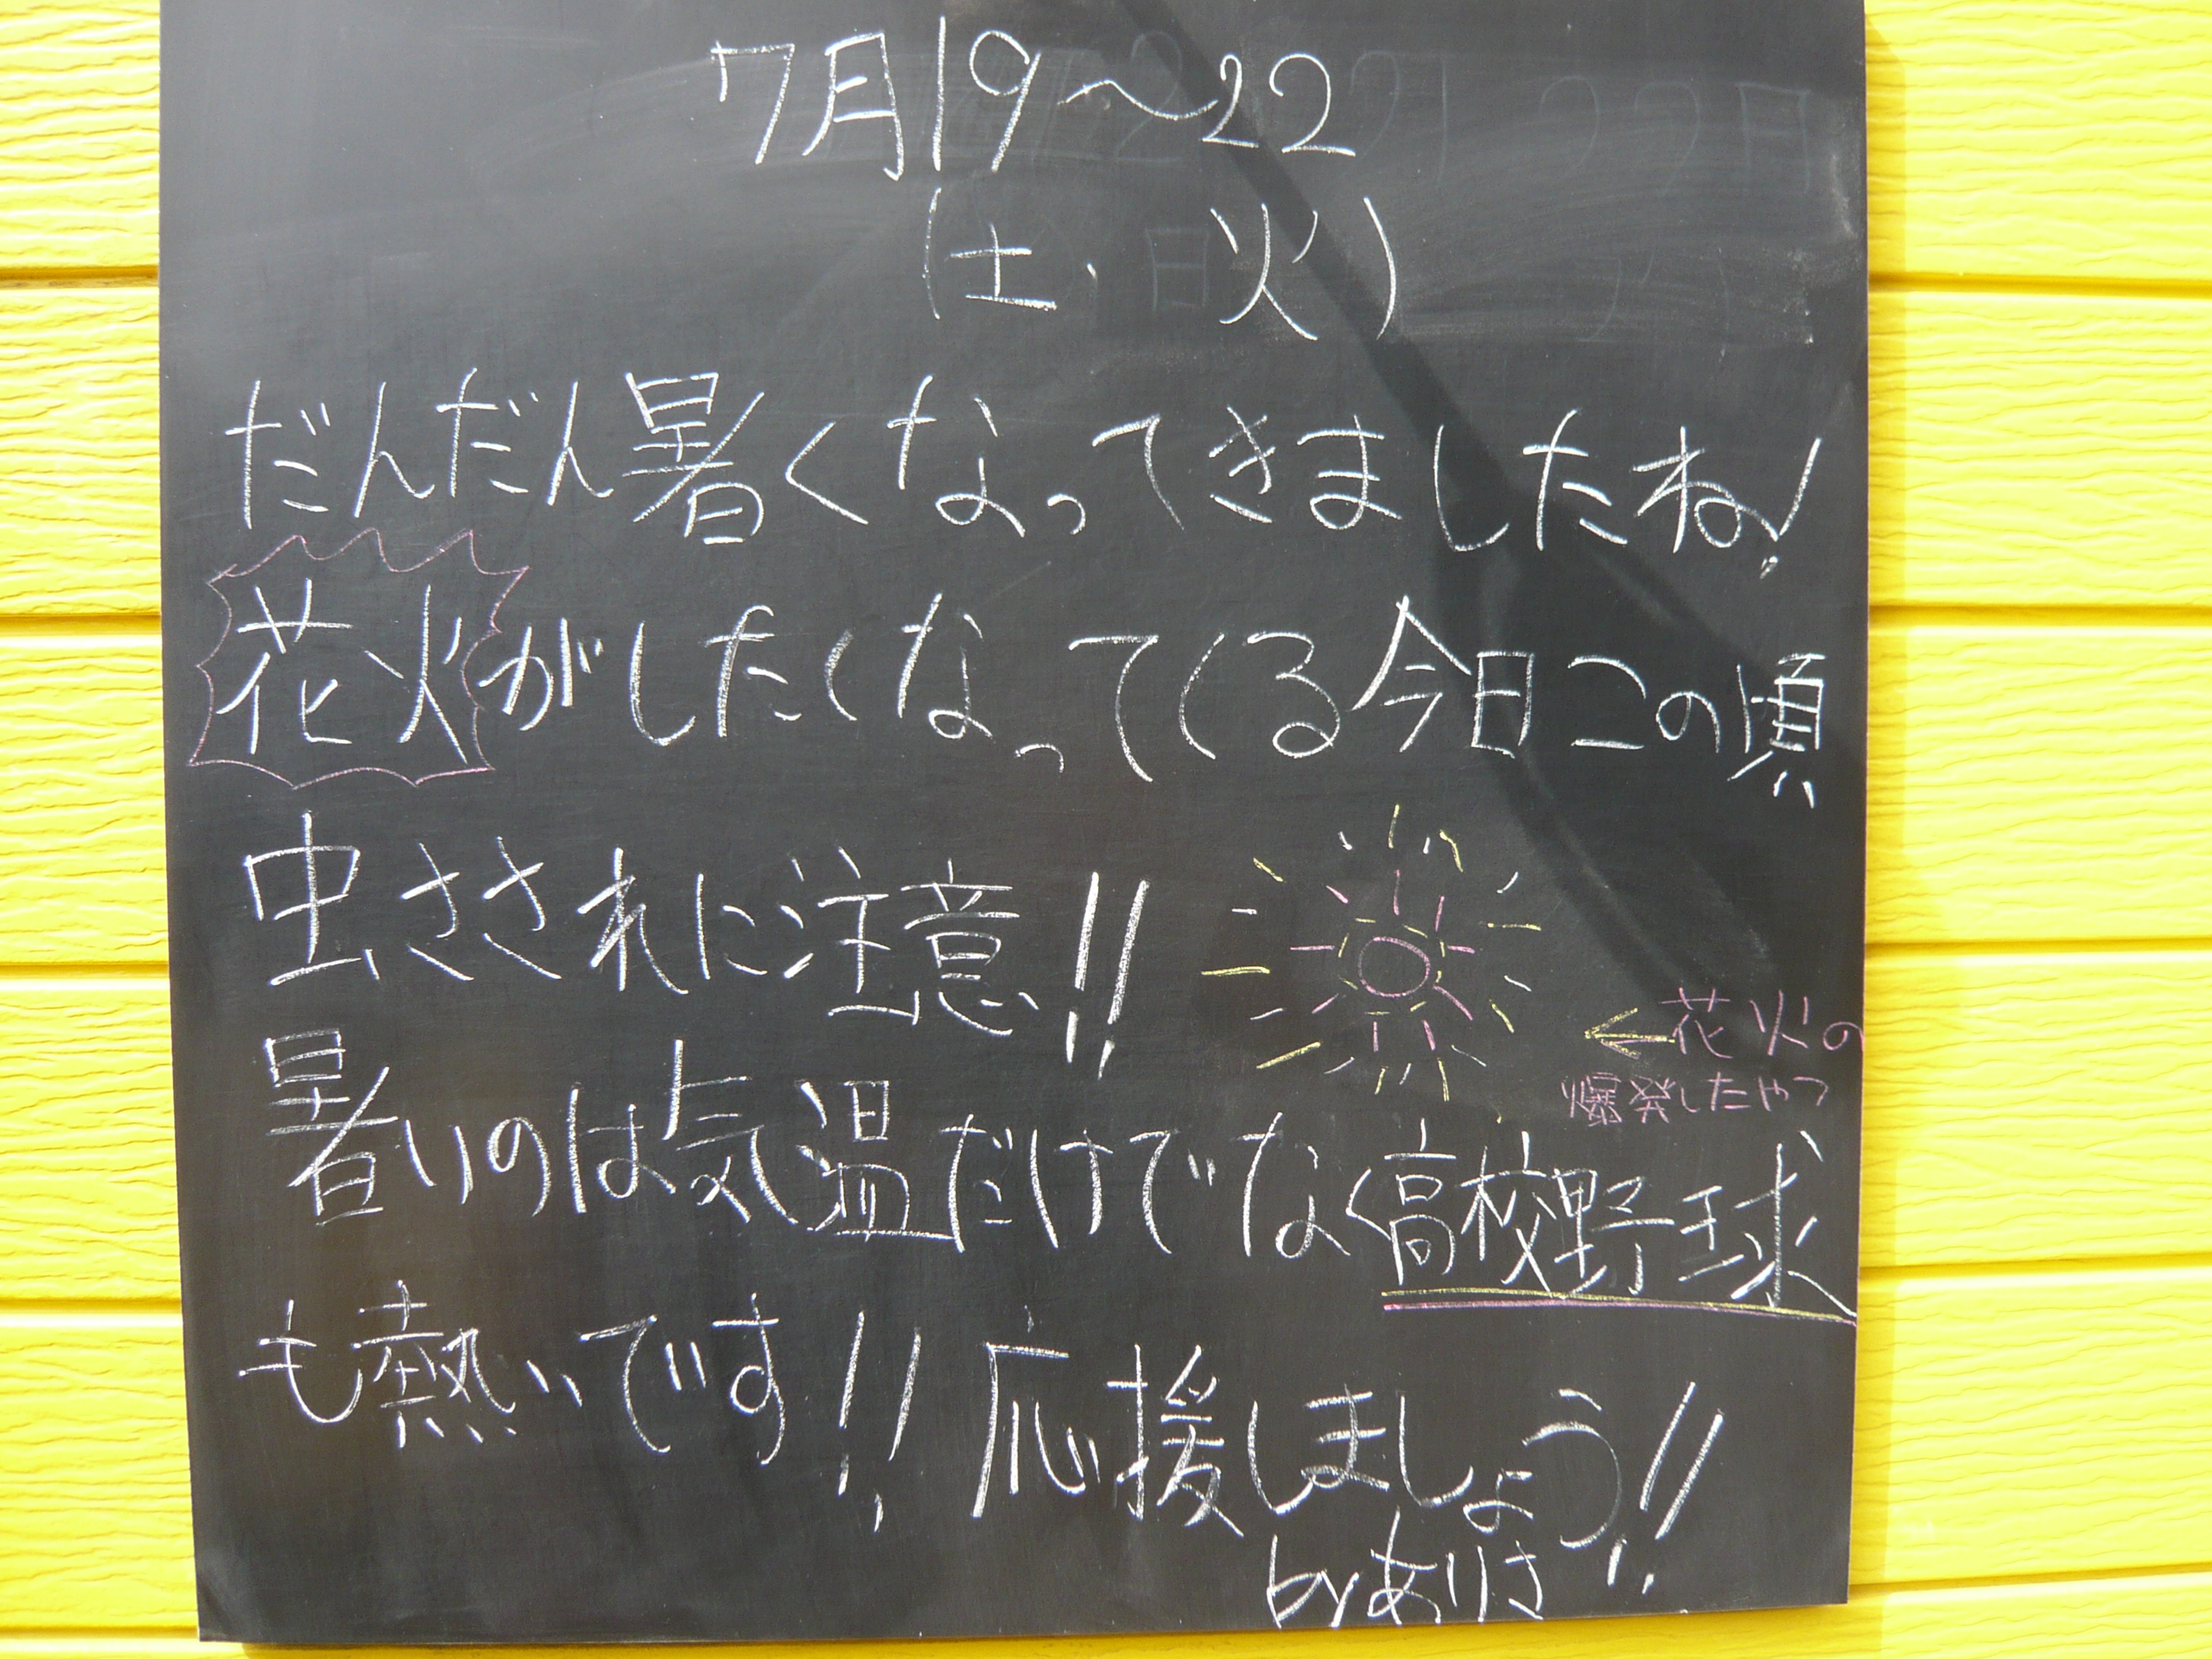 7月19〜22
(土、火)
だんだん暑くなってきましたね!
花火がしたくなってくる今日この頃
虫さされに注意!!
←花火の
爆発したやつ
暑いのは気温だけでなく高校野球
も熱いです!!応援しましょう!!
byありさ